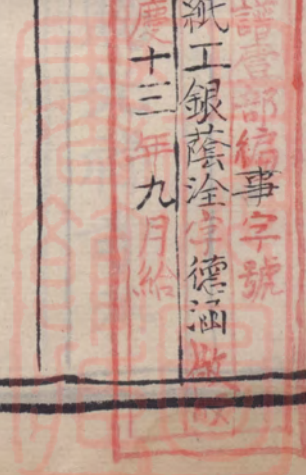 譜壹部編事字號
紙工銀蔭洤字德涵敬
慶十三年九月給